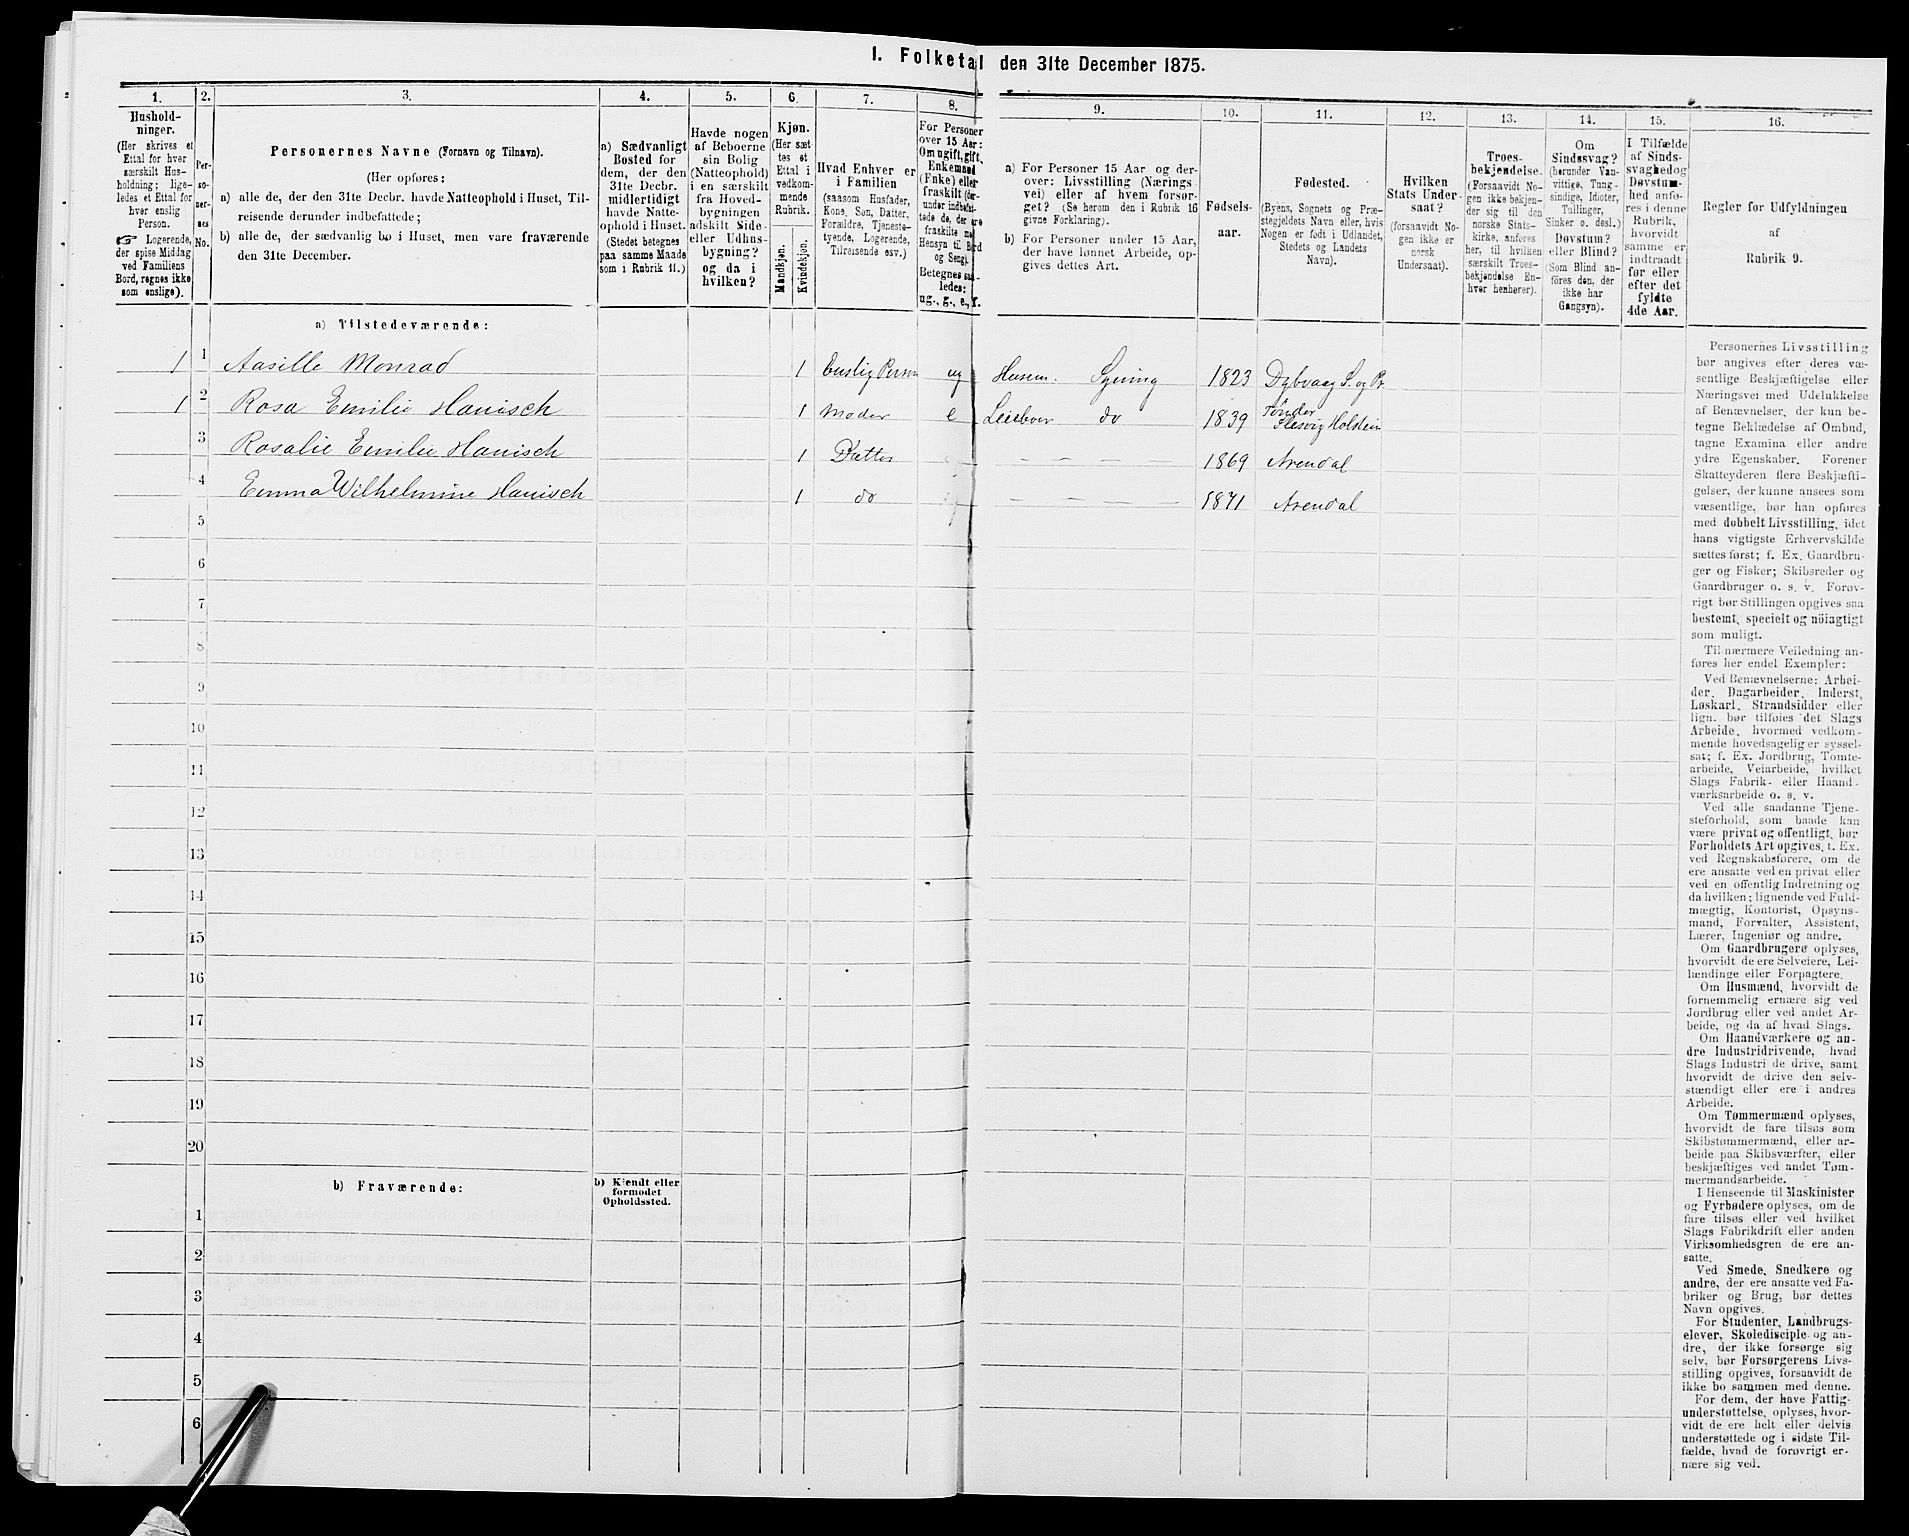 1. Folketal den 31te December 1875.
1.
Hushold-
ninger.
(Her skrives et
Ettal for hver
særskilt Hus-
holdning; lige-
ledes et Ettal for
hver enslig
Person.
☞ Logerende,
der spise Middag
ved Familiens
Bord, regnes ikke
som enslige).
2.
Per-
so-
ner-
nes
No.
3.
Personernes Navne (Fornavn og Tilnavn).
(Her opføres:
a) alle de, der den 31te Decbr. havde Natteophold i Huset, Til-
reisende derunder indbefattede;
b) alle de, der sædvanlig bo i Huset, men vare fraværende
den 31te December.
4.
a) Sædvanligt
Bosted for
dem, der den
31te Decbr.
midlertidigt
havde Natte-
ophold i Huset.
(Stedet betegnes
paa samme Maade
som i Rubrik 11.)
5.
Havde nogen
af Beboerne
sin Bolig
(Natteophold)
i en særskilt
fra Hoved-
bygningen
adskilt Side-
eller Udhus-
bygning?
og da i
hvilken?
6.
Kjøn.
(Her sæt-
tes et
Ettal i
vedkom-
mende
Rubrik.
Mandkjøn.
Kvindekjøn.
7.
Hvad Enhver er
i Familien
(saasom Husfader,
Kone, Søn, Datter,
Forældre, Tjeneste-
tyende, Logerende,
Tilreisende osv.)
8.
For Personer
over 15 Aar:
Om ugift, gift,
Enkemand
(Enke) eller
fraskilt (der-
under indbefat-
tede de, der ere
fraskilte med
Hensyn til Bord
og Seng).
Betegnes saa-
ledes:
ug., g., e., f.
9.
a) For Personer 15 Aar og der-
over: Livsstilling (Nærings
vei) eller af hvem forsør-
get? (Se herom den i Rubrik 16
givne Forklaring).
b) For Personer under 15 Aar,
der have lønnet Arbeide, op-
gives dettes Art.
10.
Fødsels-
aar.
11.
Fødested.
(Byens, Sognets og Præ-
stegjeldets Navn eller, hvis
Nogen er født i Udlandet,
Stedets og Landets
Navn).
12.
Hvilken
Stats Under-
saat?
(forsaavidt No-
gen ikke er
norsk
Undersaat).
13.
Troes-
bekjendelse.
(Forsaavidt No-
gen ikke bekjen-
der sig til den
norske Stats-
kirke, anføres
her, til hvilken
særskilt Troes-
bekjendelse En-
hver henhører).
14.
Om
Sindssvag?
(herunder Van-
vittige, Tung-
sindige, Idioter,
Tullinger,
Sinker o. desl.)
Døvstum?
eller Blind?
(Som Blind an-
føres den, der
ikke har
Gangsyn).
15.
I Tilfælde
af Sinds-
svaghed og
Døvstum-
hed anfø-
res i denne
Rubrik,
hvorvidt
samme er
indtraadt
før eller
efter det
fyldte
4de Aar.
16.
Regler for Udfyldningen
af
Rubrik 9.
a) Tilstedeværende:
1 1 Aasille Monrad 1 Enslig Person ug Husem. Syning 1823 Dybvaag S. og Pr.
1 2 Rosa Emilie Hanisch 1 Moder e Leieboer do 1839 Tønder Slesvig Holstein
3 Rosalie Emilie Hanisch 1 Datter — — 1869 Arendal
4 Emma Wilhelmine Hanisch 1 do — — 1871 Arendal
5
6
7
8
9
10
11
12
13
14
15
16
17
18
19
20
b) Fraværende:
b) Kjendt eller
formodet
Opholdssted.
1
2
3
4
5
6
Personernes Livsstilling
bør angives efter deres væ-
sentlige Beskjæftigelse eller
Næringsvei med Udelukkelse
af Benævnelser, der kun be-
tegne Beklædelse af Ombud,
tagne Examina eller andre
ydre Egenskaber. Forener
Skatteyderen flere Beskjæfti-
gelser, der kunne ansees som
væsentlige, bør han opføres
med dobbelt Livsstilling, idet
hans vigtigste Erhvervskilde
sættes først; f. Ex. Gaardbru-
ger og Fisker; Skibsreder og
Gaardbruger o. s. v. Forøv-
rigt bør Stillingen opgives saa
bestemt, specielt og nöiagtigt
som muligt.
Til nærmere Veiledning an-
føres her endel Exempler:
Ved Benævnelserne: Arbei-
der, Dagarbeider, Inderst,
Løskarl, Strandsidder eller
lign. bør tilføies det Slags
Arbeide, hvormed vedkom-
mende hovedsagelig er syssel-
sat; f. Ex. Jordbrug, Tomte-
arbeide, Veiarbeide, hvilket
Slags Fabrik- eller Haand-
værksarbeide o. s. v.
Ved alle saadanne Tjene-
steforhold, som baade kan
være privat og offentligt, bør
Forholdets Art opgives, f. Ex.
ved Regnskabsførere, om de
ere ansatte ved en privat eller
ved en offentlig Indretning og
da hvilken; lignende ved Fuld-
mægtig, Kontorist, Opsyns-
mand, Forvalter, Assistent,
Lærer, Ingeniør og andre.
Om Gaardbrugere oplyses,
hvorvidt de ere Selveiere, Lei-
lændinge eller Forpagtere.
Om Husmænd, hvorvidt de
fornemmelig ernære sig ved
Jordbrug eller ved andet Ar-
beide, og da af hvad Slags.
Om Haandværkere og an-
dre Industridrivende, hvad
Slags Industri de drive, samt
hvorvidt de drive den selv-
stændigt eller ere i andres
Arbeide.
Om Tømmermænd oplyses,
hvorvidt de fare tilsøs som
Skibstømmermænd, eller ar-
beide paa Skibsværfter, eller
beskjæftiges ved andet Tøm-
mermandsarbeide.
I Henseende til Maskinister
og Fyrbødere oplyses, om de
fare tilsøs eller ved hvilket
Slags Fabrikdrift eller anden
Virksomhedsgren de ere an-
satte.
Ved Smede, Snedkere og
andre, der ere ansatte ved Fa-
briker og Brug, bør dettes
Navn opgives.
For Studenter, Landbrugs-
elever, Skoledisciple og an-
dre, der ikke forsørge sig
selv, bør Forsørgerens Livs-
stilling opgives, forsaavidt de
ikke bo sammen med denne.
For dem, der have Fattig-
understøttelse, oplyses, hvor-
vidt de ere helt eller delvis
understøttede og i sidste Til-
fælde, hvad de forøvrigt er-
nære sig ved.